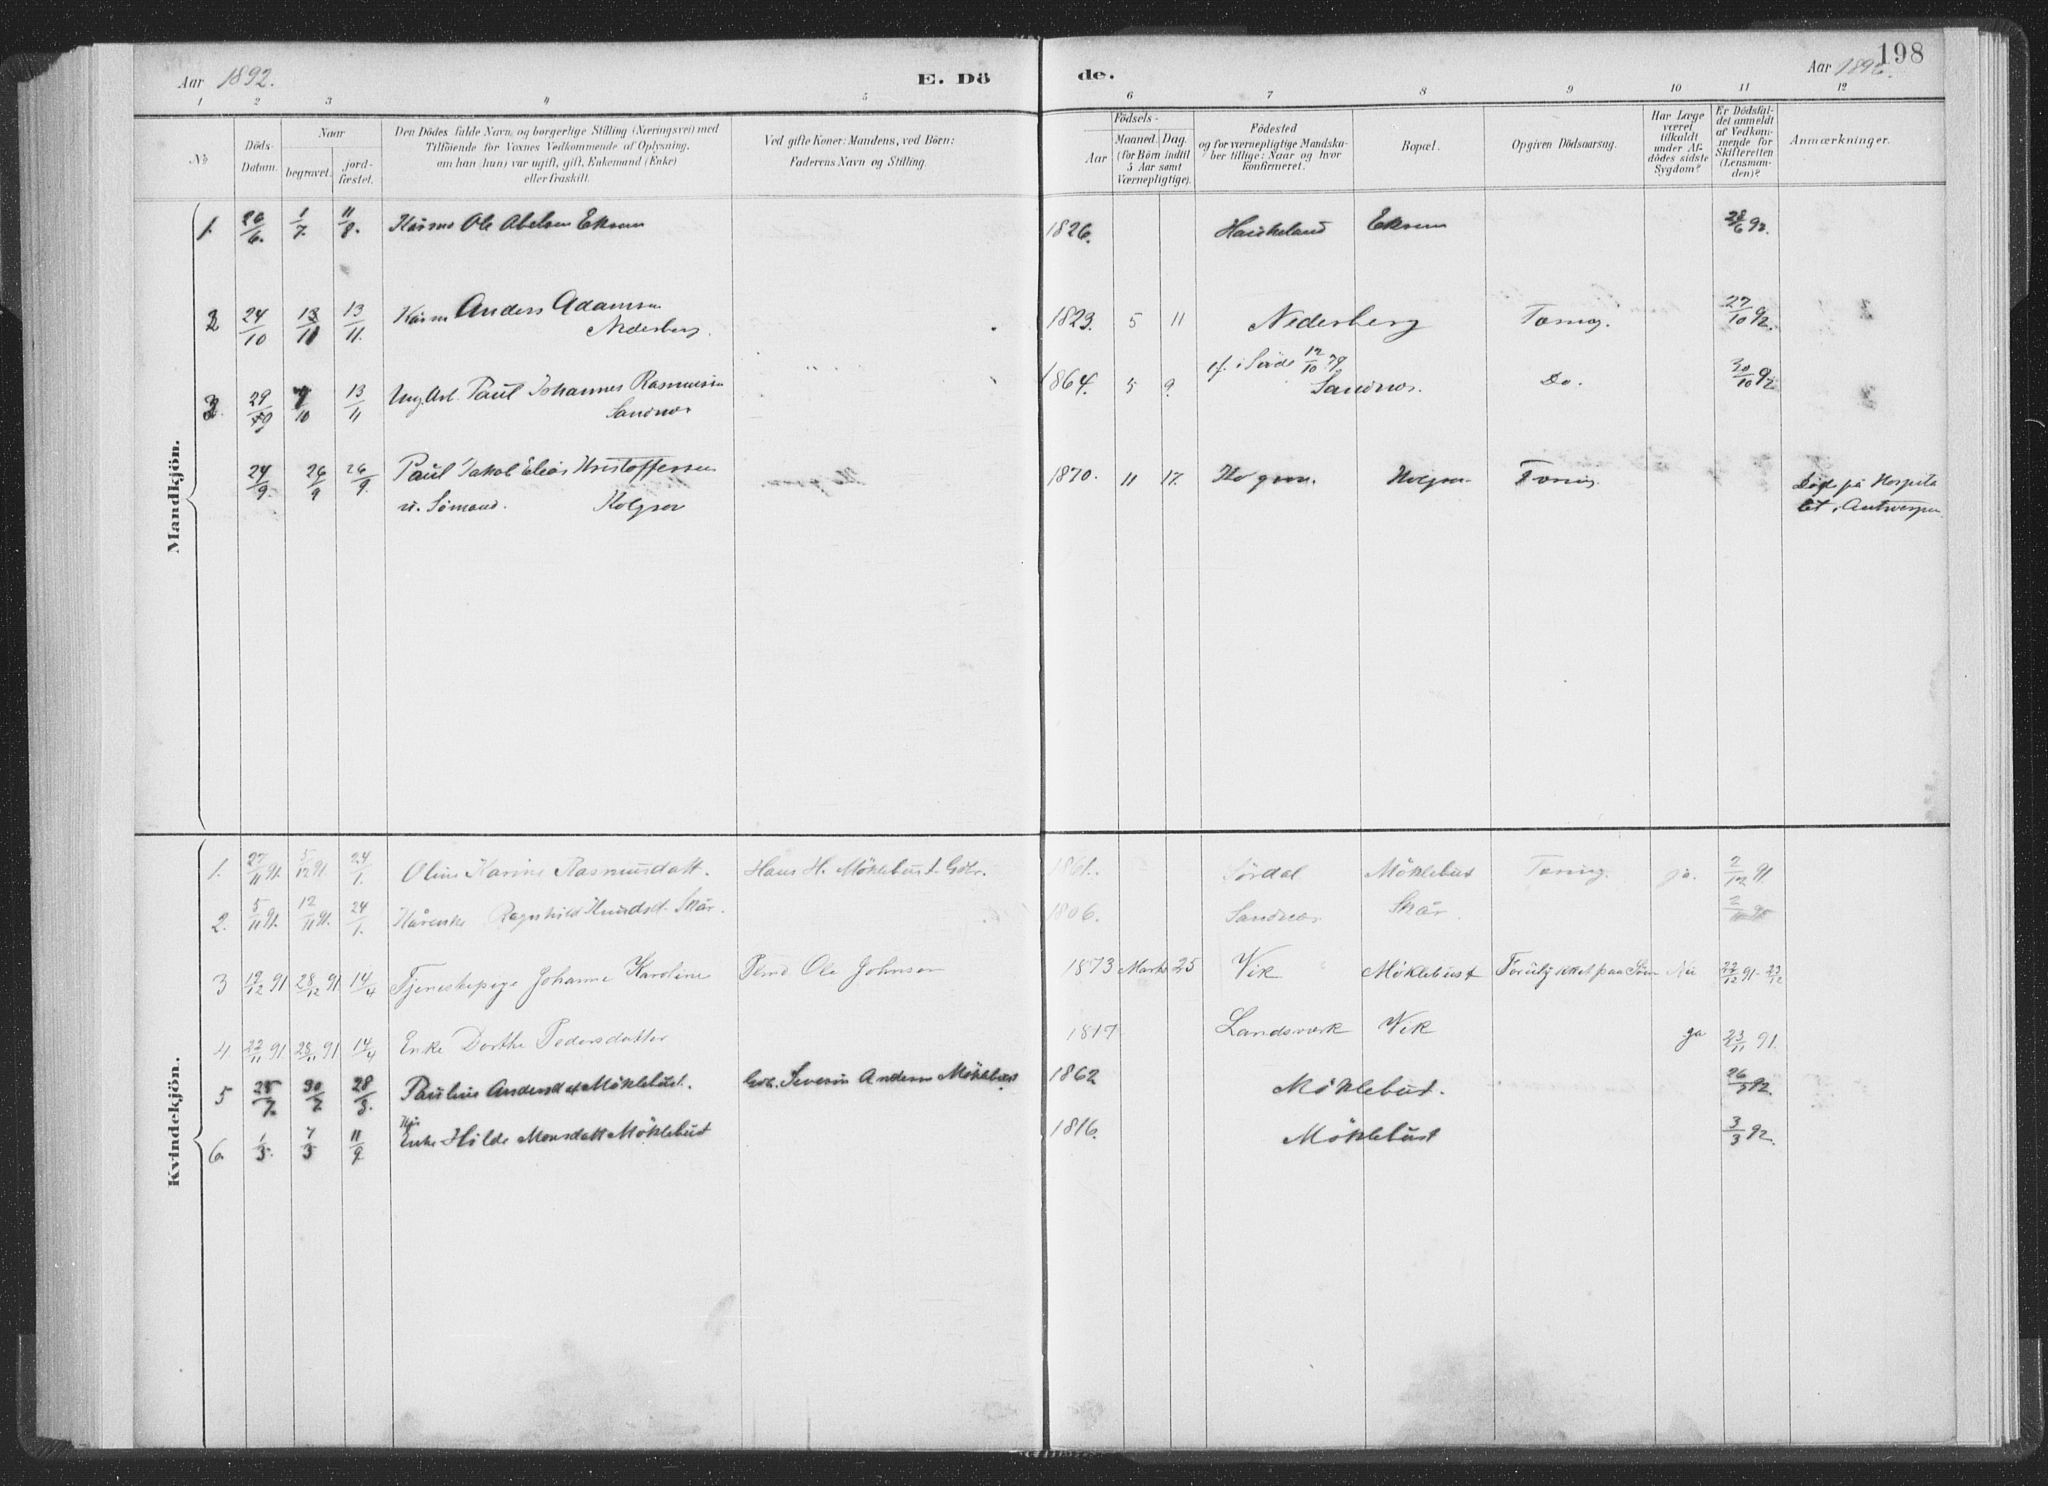 198
Aar 1892. E. Dö de. Aar 1892.
1 2 3 4 5 6 7 8 9 10 11 12
No
Döds-Datum.
Naar
begravet.
jord-fæstet.
Den Dödes fulde Navn, og borgerlige Stilling (Næringsvei) med
Tilföiende for Voxnes Vedkommende af Oplysning,
om han (hun) var ugift, gift, Enkemand (Enke)
eller fraskilt.
Ved gifte Koner: Mandens, ved Börn:
Faderens Navn og Stilling.
Födsels-
Aar
Maaned. Dag.
(for Börn indtil
5 Aar samt
Værnepligtige).
Födested
og for værnepligtige Mandska-
ber tillige: Naar og hvor
konfirmeret.
Bopæl.
Opgiven Dödsaarsag.
Har Læge
været
tilkaldt
under Af-
dödes sidste
Sygdom?
Er Dödsfal-
det anmeldt
af Vedkom-
mende for
Skifteretten
(Lensman-
den)?
Anmærkninger.
Mandkjön.
1. 26/6. 1/7. 11/8. Ole Abelsen Eksem 1826. Haukeland Eksem 28/6 92.
2 24/10 13/11 13/11. Anders Adamsen 1823. 5 11 Nederberg Tæring. 27/10 92.
Nederberg.
3 29/9 10 13/11 Ung. Arb. Paul Johannes Rasmussen 1864. 5 9. 12/10 79 Do. 30/10 92
Sandnæs Sandnæs.
24/9. 26/9 26/9. Paul Jakob Elias Kristoffersen 1870. 11 17. Tæring Död på Hospita
u. Sömand. let i Antwerpen.
Kvindekjön.
1. 27/11 91. 5/12 91. 24/1. Oline Karine Rasmusdatt. Hans H. Möklebust. Gbr. 1861. Sördal Möklebust Tæring. ja. 2/12 91.
2. 5/11 91. 12/11 91. 24/1. Kårenke Ragnhild Knudsd. Skår. 1806. Sandnæs Skår.
3 19/12 91 28/12 91 14/4 Tjenestepige Johanne Karoline Ole Johnsen 1873 Marts 25 Vik Möklebust Forulykket paa Söen Nei 22/12 91 - 23/12
4 22/11 91 28/11 91 14/4 Enke Dorthe Pedersdatter 1817 Landsværk Vik ja 23/11 91.
5 25/7. 30/7 28/8. Pauline Andersdat Möklebust. Gbr. Severin Andersen Möklebust 1862 Möklebust. 26/7 92.
6. 1/3. 7/3 11/9 Enke Hilde Monsdatt Möklebust 1816. Möklebust 3/3 92.